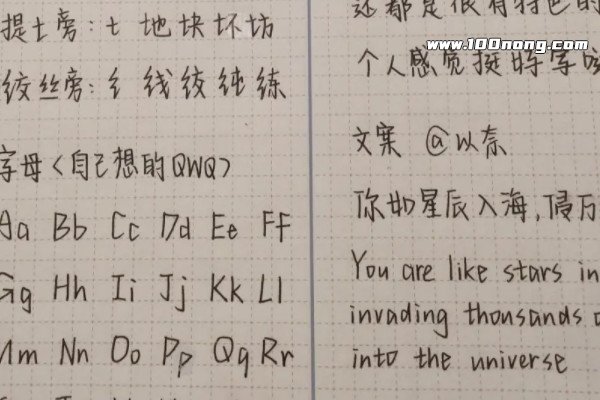 提土旁:土 地块坏坊
绞丝旁:纟 线绞纯练
字母〈自己想的QWQ〉
Aa Bb Cc Dd Ee Ff
Gg Hh Ii Jj Kk Ll
Mm Nn Oo Pp Qq Rr
还都是很有特色的
www.100nong.com
个人感觉挺
文案 @以奈
你如星辰入海,侵万
You are like stars in
invading thousands
into the universe